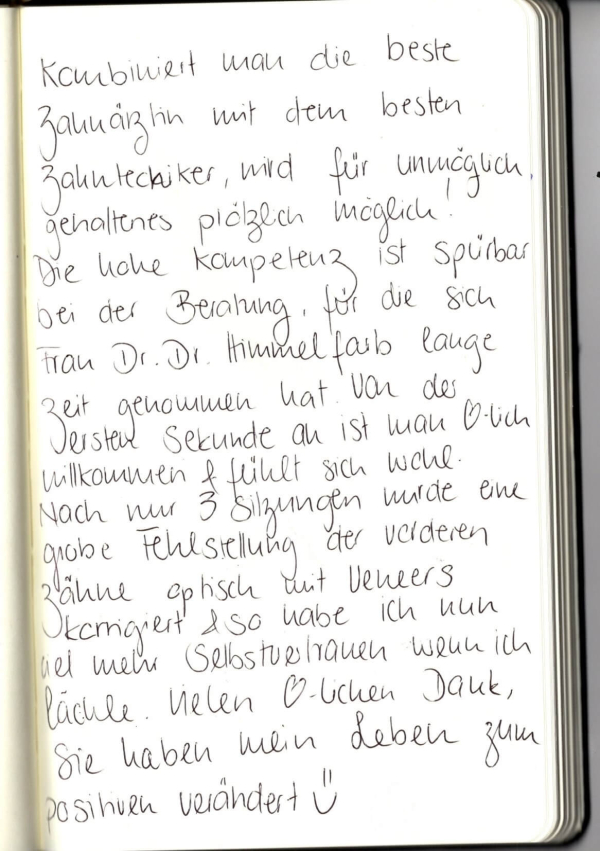 Kombiniert man die beste
Zahnärztin mit dem besten
Zahntechniker, wird für unmöglich
gehaltenes plötzlich möglich!
Die hohe Kompetenz ist spürbar
bei der Beratung, für die sich
Frau Dr. Dr. Himmelfarb lange
Zeit genommen hat. Von der
ersten Sekunde an ist man ♡-lich
willkommen & fühlt sich wohl.
Nach nur 3 Sitzungen wurde eine
grobe Fehlstellung der vorderen
Zähne optisch mit Veneers
korrigiert & so habe ich nun
viel mehr Selbstvertrauen wenn ich
lächle. Vielen ♡-lichen Dank,
Sie haben mein Leben zum
positiven verändert ☺